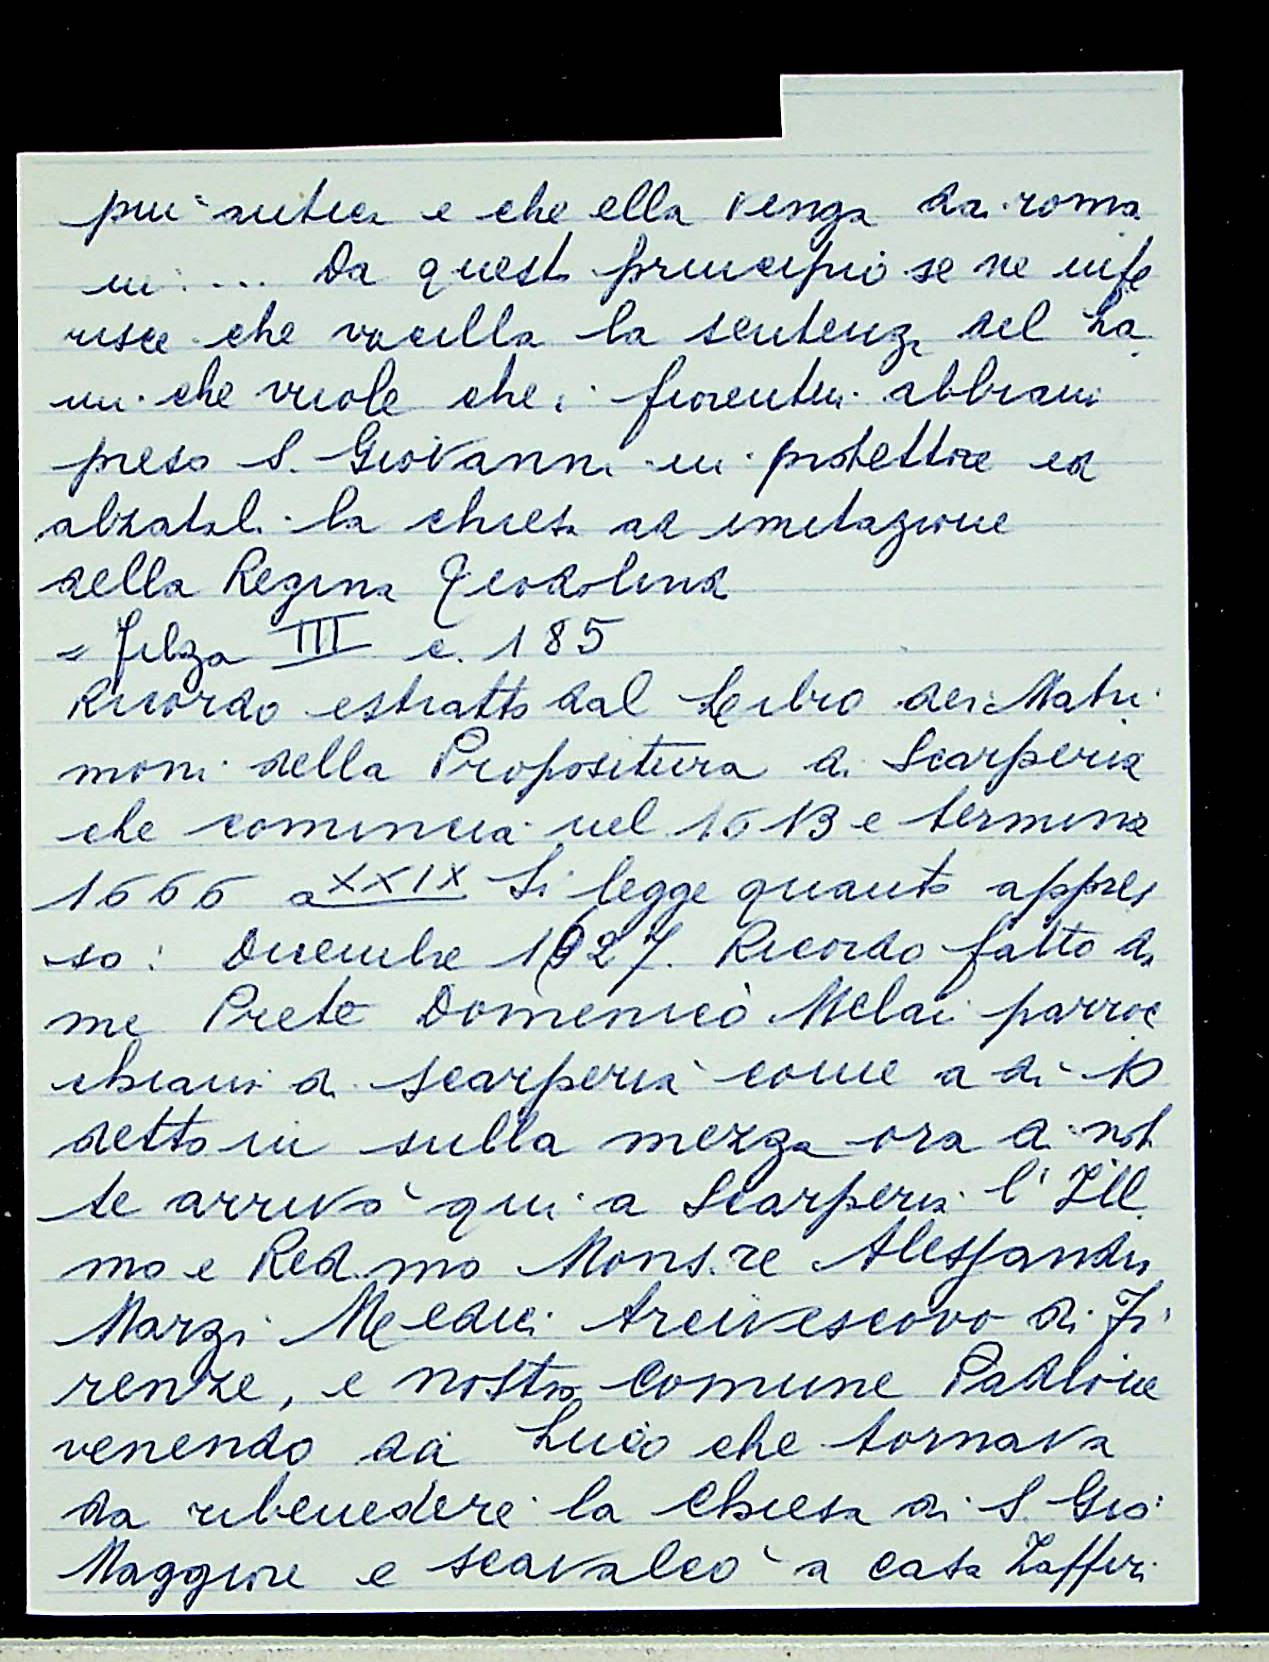 piu' antica e che ella venga da roma
ni .... Da questo principio se ne infe
risce che vacilla la sentenza del La
mi che vuole che i fiorentini abbiano
preso S. Giovanni in protettore ed
alzatali la chiesa ad imitazione
della Regina Teodolinda
= Filza III c. 185
Ricordo estratto dal Libro dei Matri
moni della Propositura di Scarperia
che comincia nel 1613 e termina
1666 a XXIX Si legge quanto appres
so: Dicembre 1627. Ricordo fatto da
me Prete Domenico Melai parroc
chiano di Scarperia come a di 10
detto in sulla mezza ora di not
te arrivò qui a Scarperia l'Ill
mo e Red.mo Mons.re Alessandro
Marzi Medici Arcivescovo di Fi
renze, e nostro comune Padrone
venendo da Luco che tornava
da ribenedere la Chiesa di S. Gio
Maggiore e scavalcò a casa Zafferi